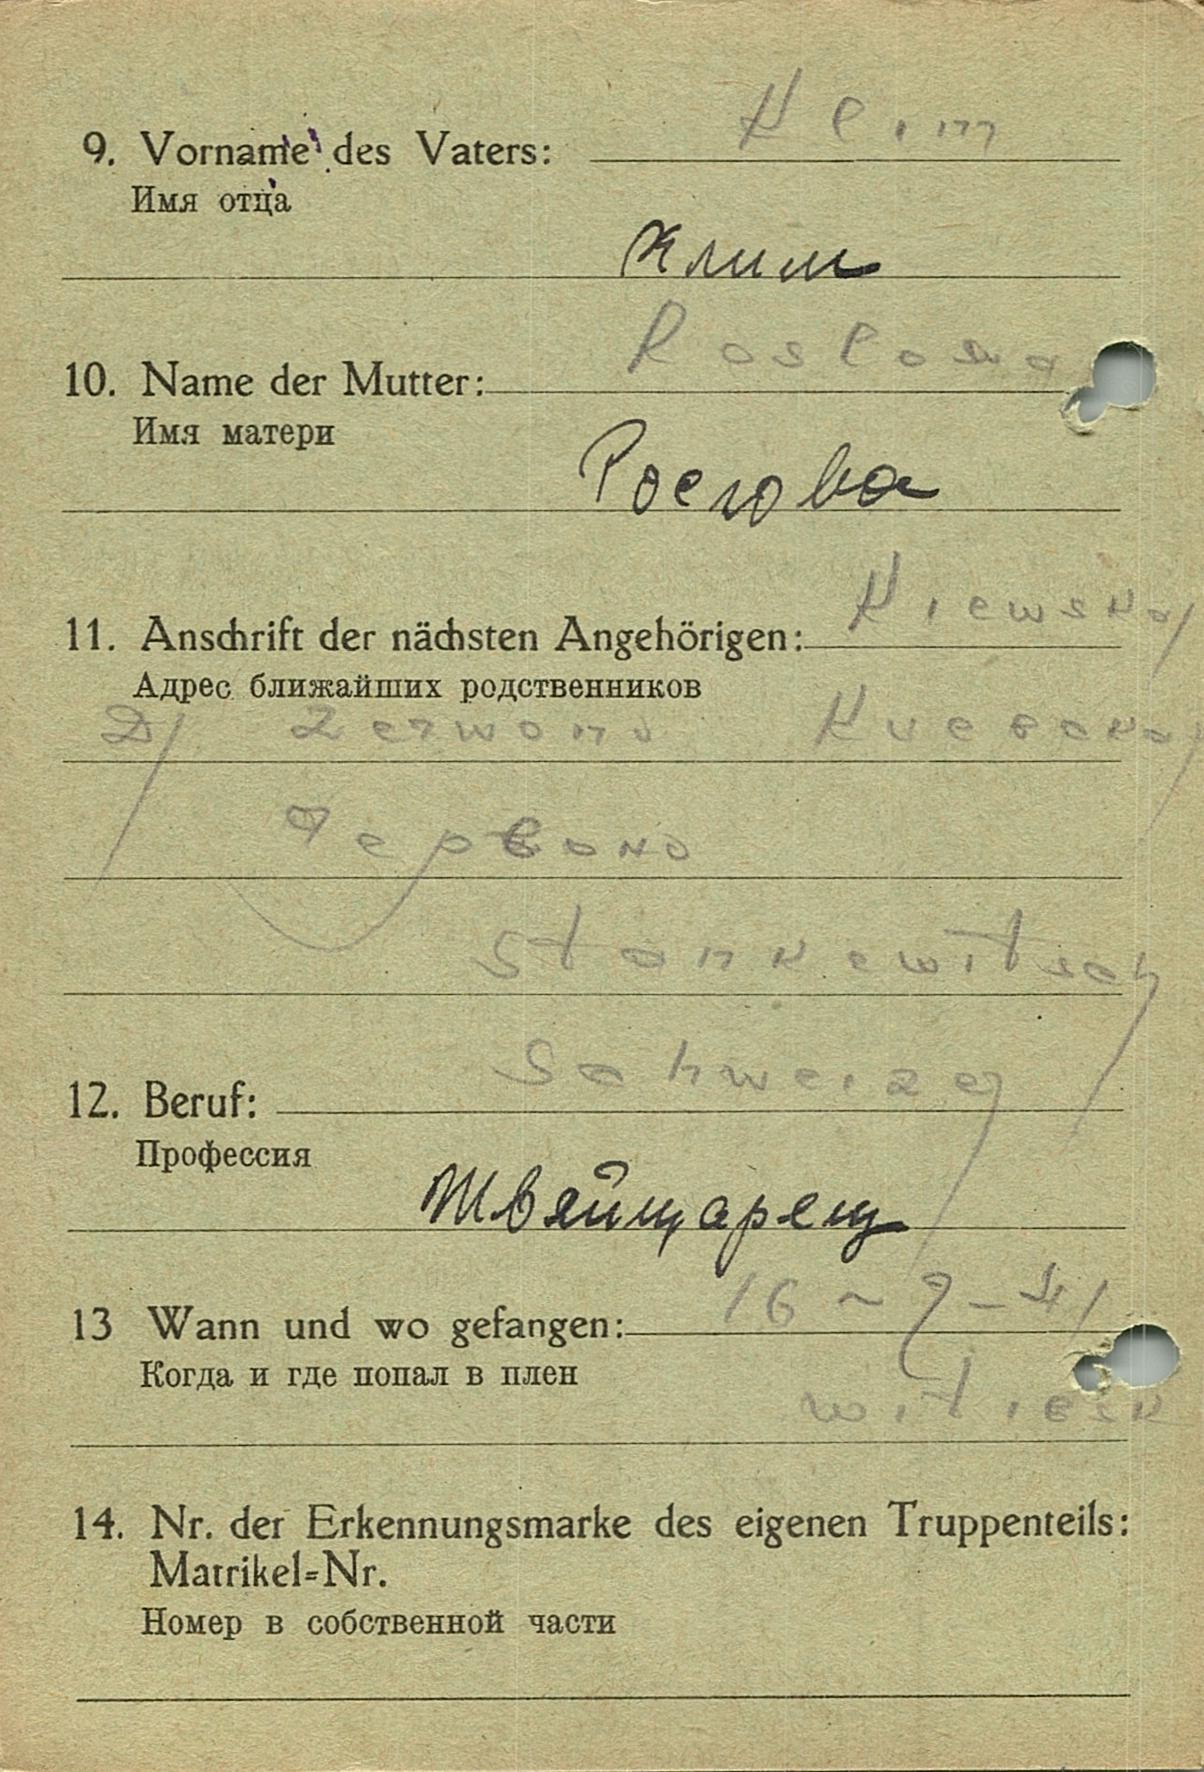 Klim
9. Vorname des Vaters:
Имя отца
Клим
Roslowa
10. Name der Mutter:
Имя матери
Рослова
Kiewskaj
11. Anschrift der nächsten Angehörigen:
Адрес ближайших родственников
D/ Zerwono
Червоно
Stankewitsch
Schweizer
12. Beruf:
Профессия
Швейцарец
16 - 7 - 41
13 Wann und wo gefangen:
Когда и где попал в плен
Witiebsk
14. Nr. der Erkennungsmarke des eigenen Truppenteils:
Matrikel=Nr.
Номер в собственной части